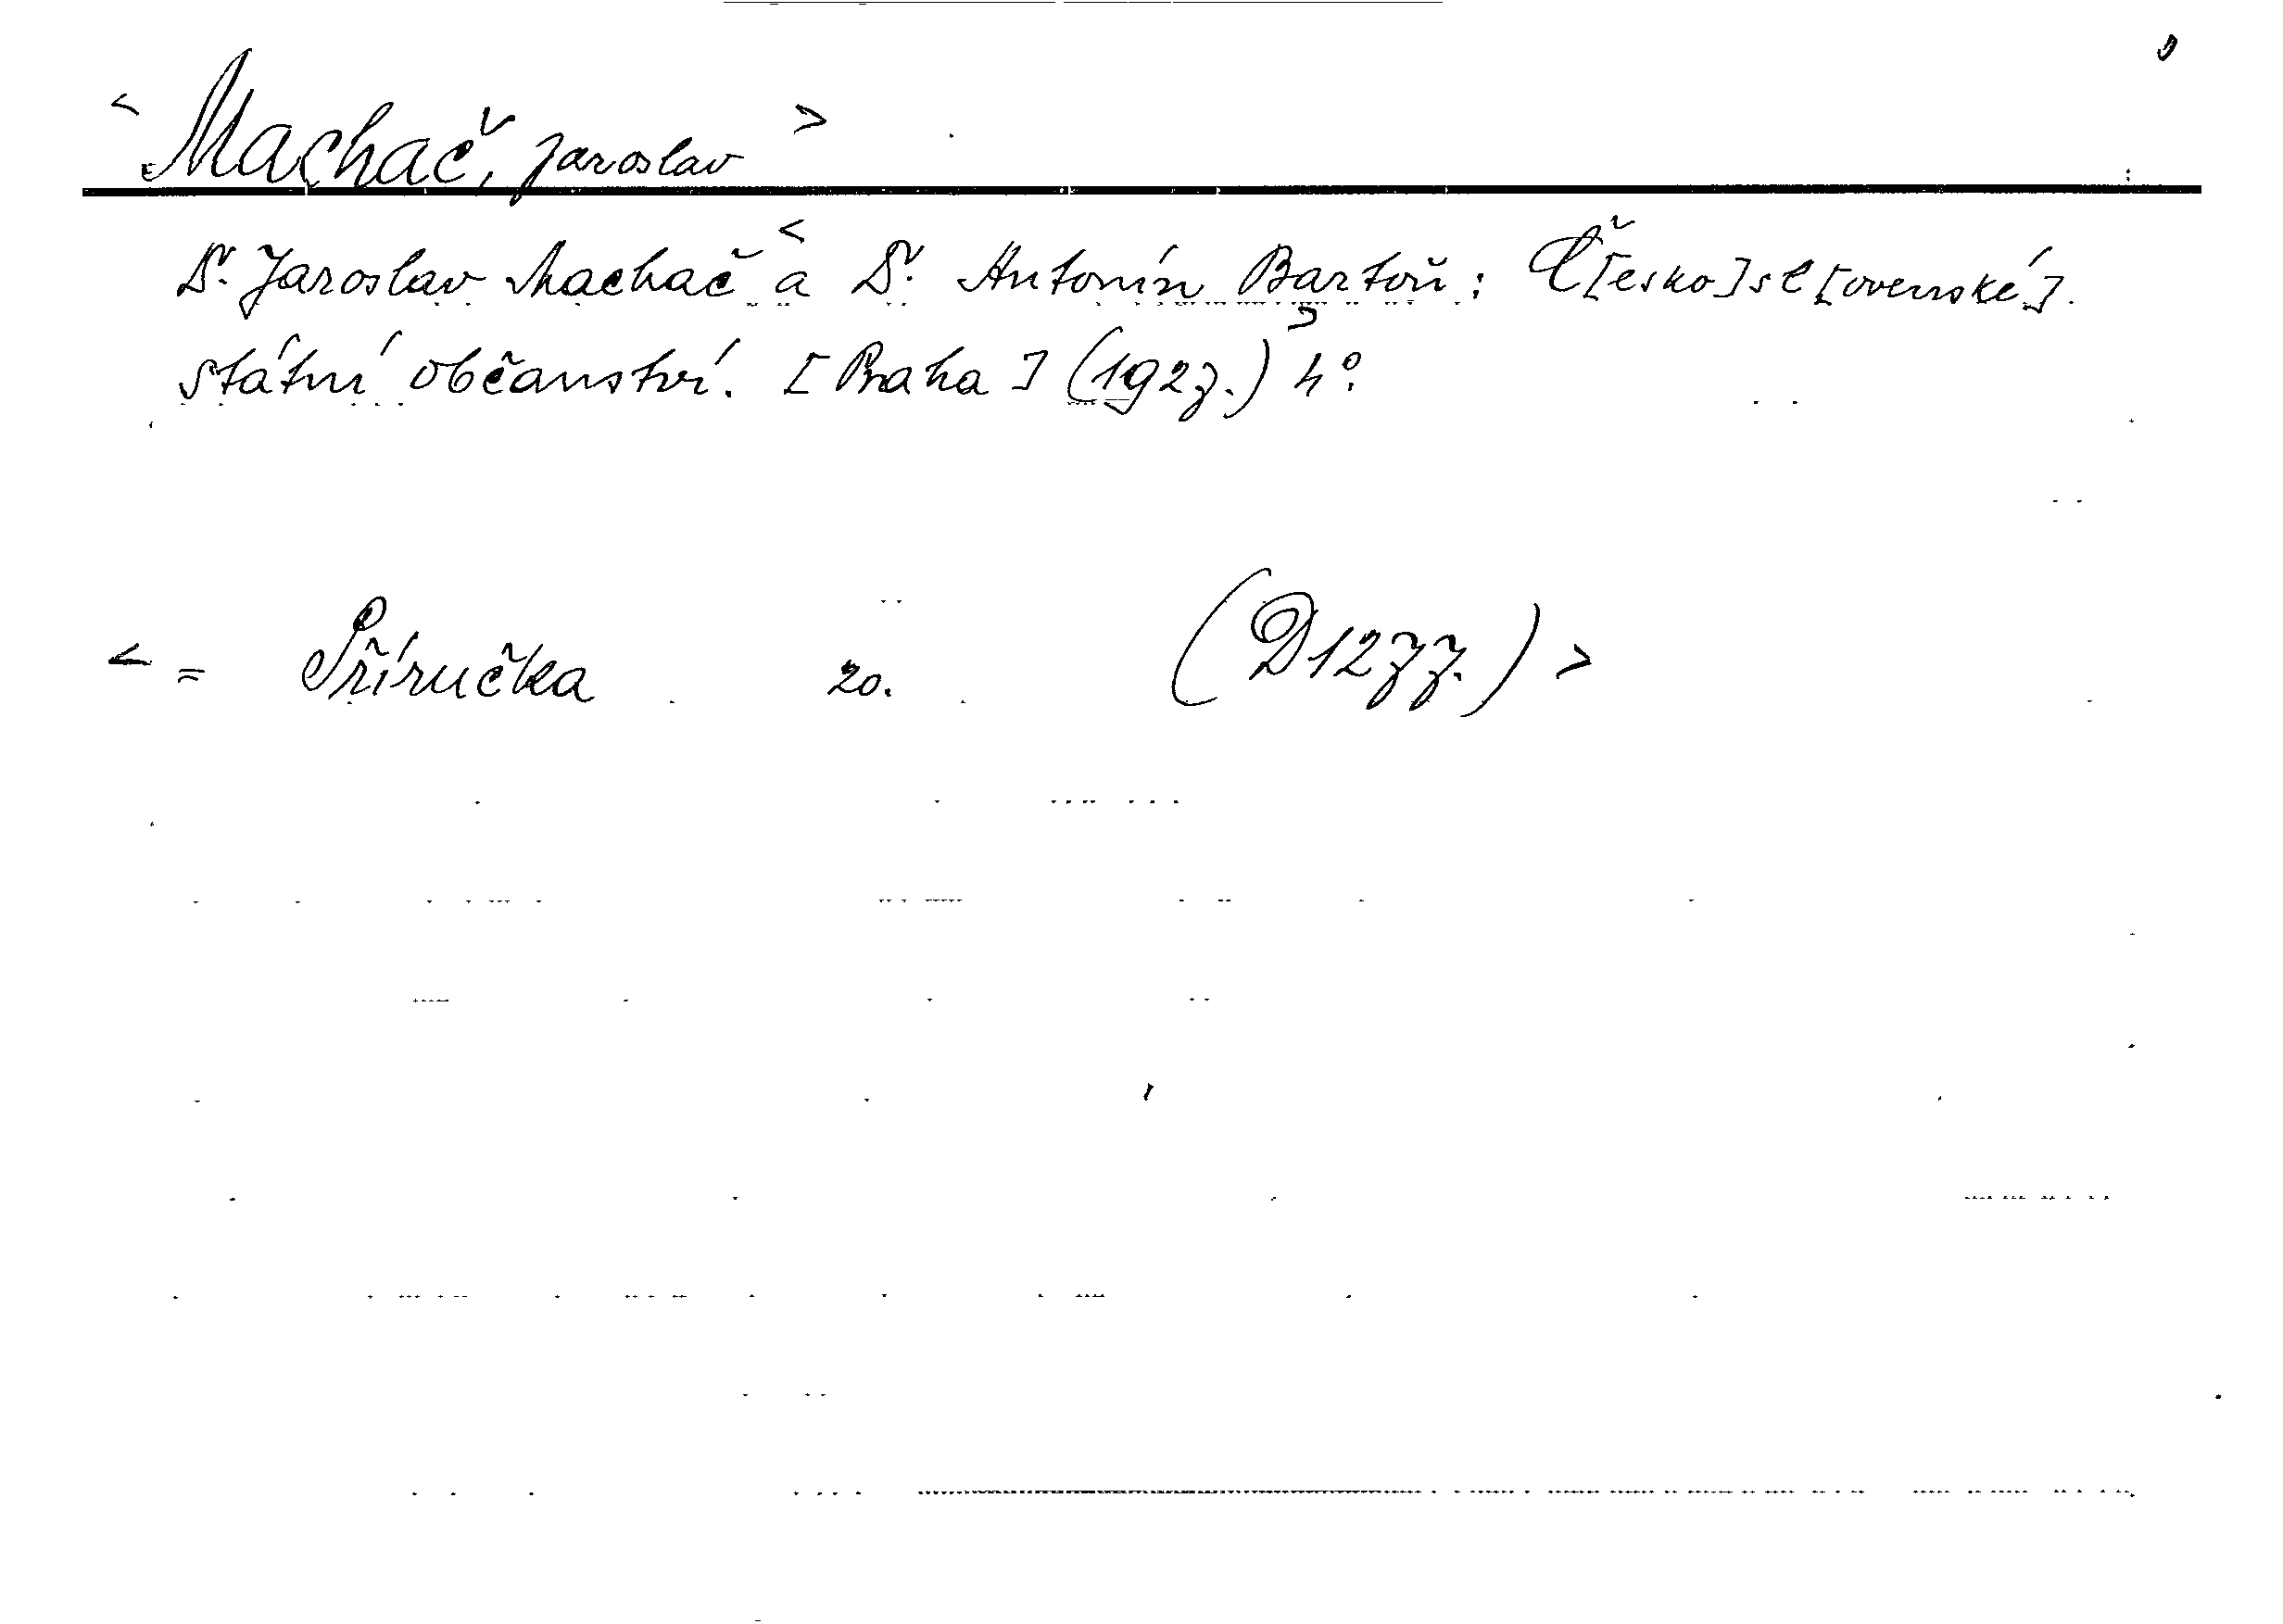 < Machač, Jaroslav >
Dr. Jaroslav Machač < a Dr. Antonín Bartoň: Č[esko]sl[ovenské].
státní občanství. [Praha] (1927.) > 4°.
< = Příručka 20. (D1277.) >